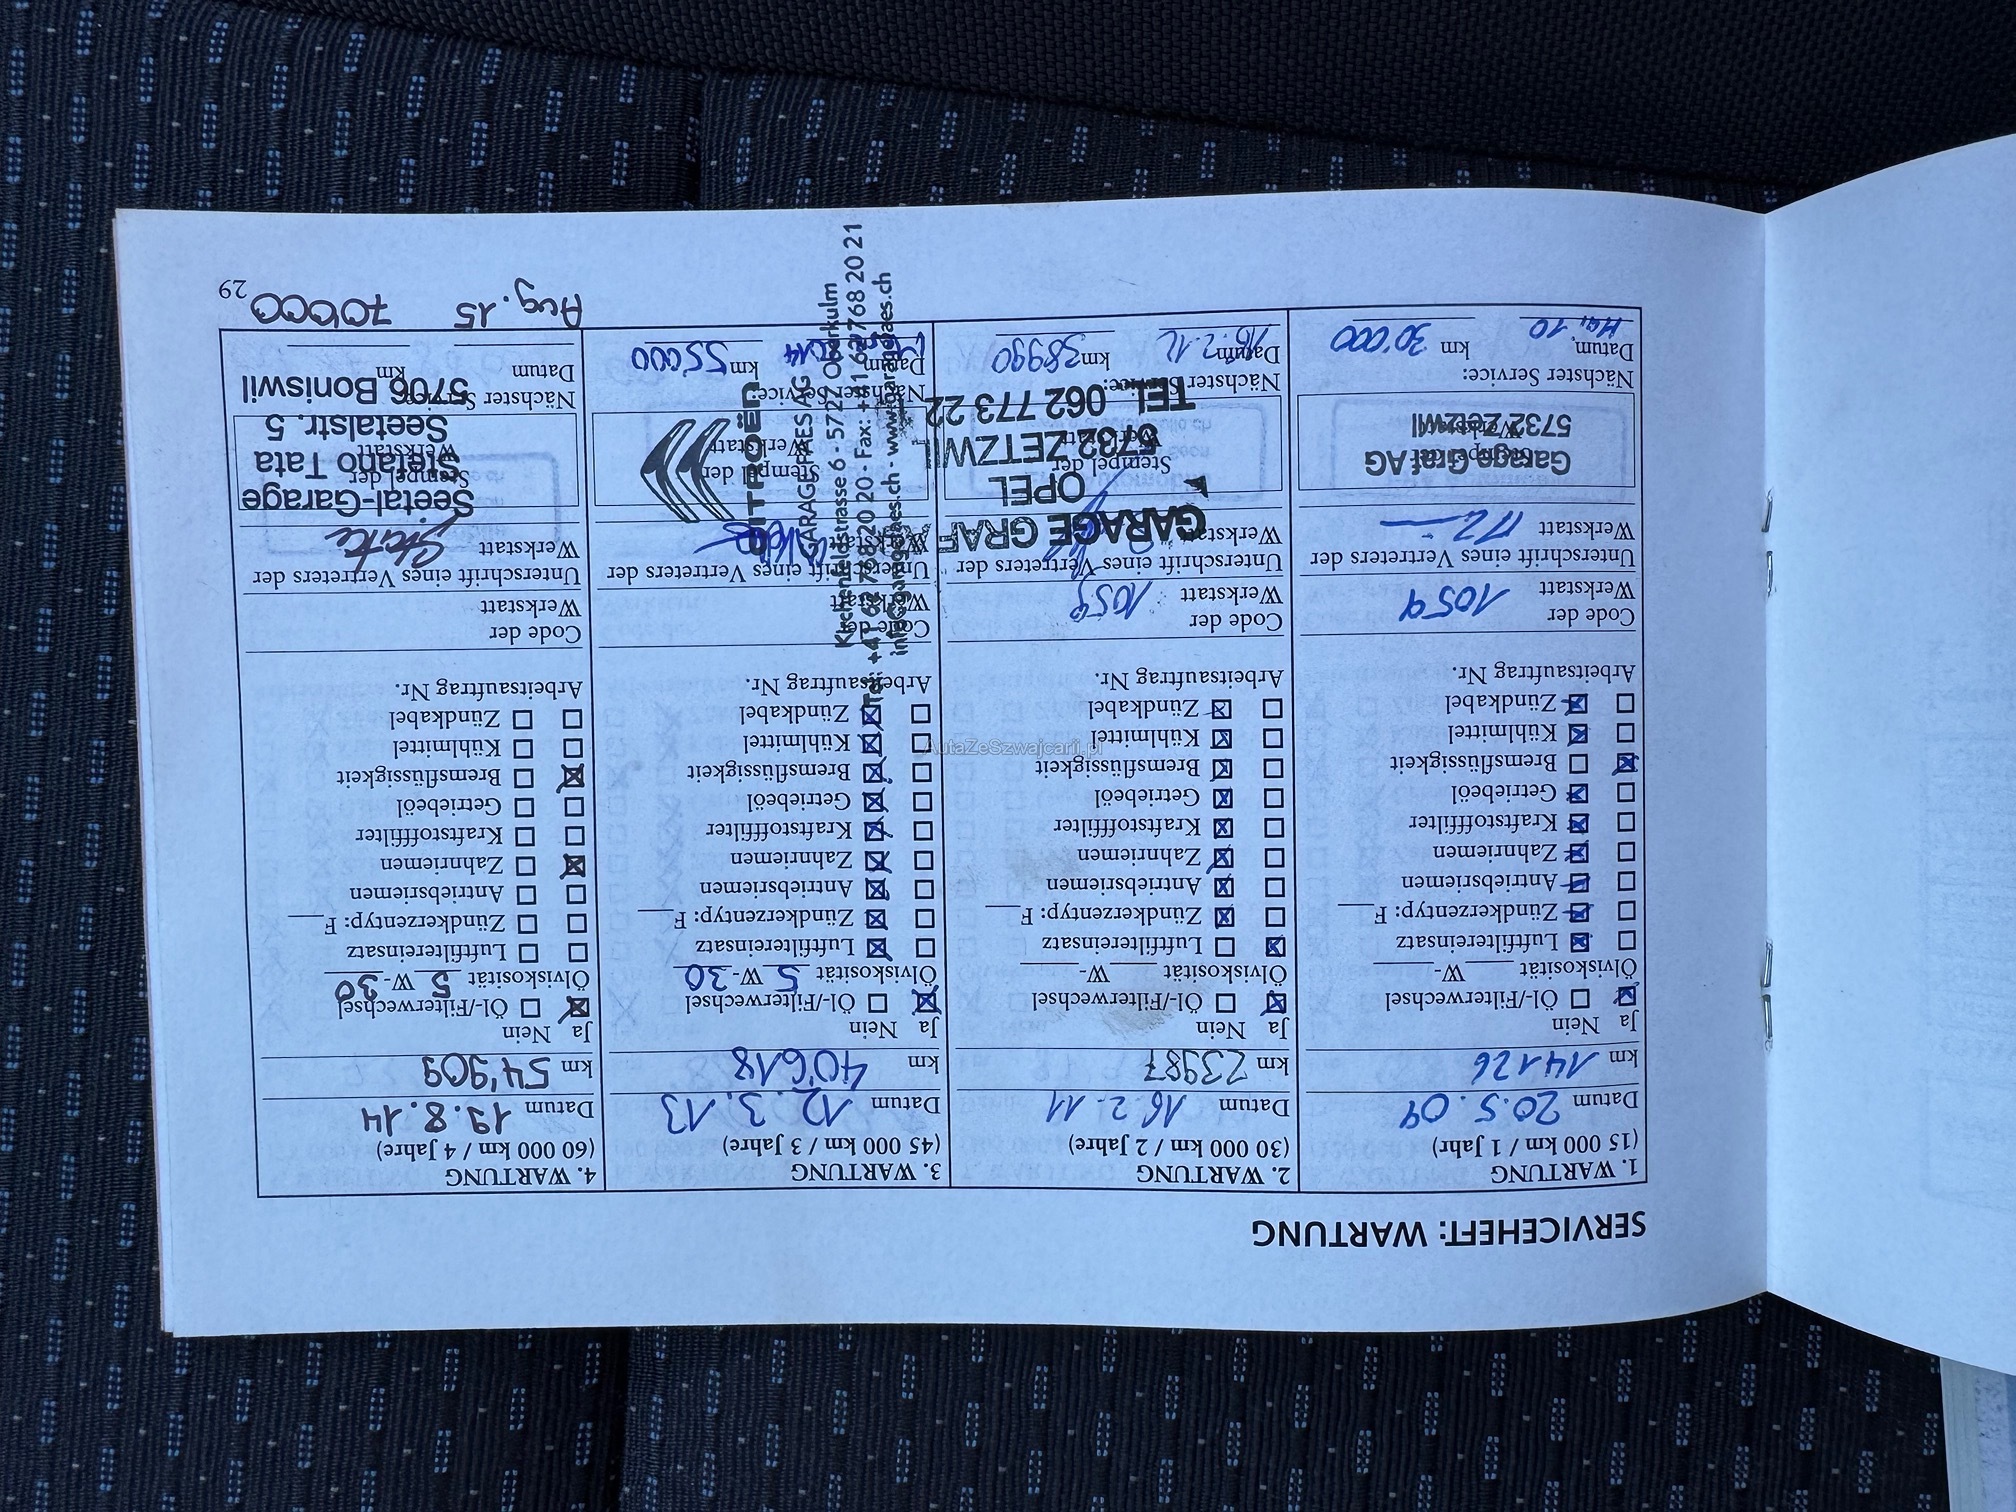 SERVICEHEFT: WARTUNG
1. WARTUNG
(15 000 km / 1 Jahr)
Datum 20.5.09
km 14126
Ja Nein
Öl-/Filterwechsel
Ölviskosität ___ W-___
Luftfiltereinsatz
Zündkerzentyp: F___
Antriebsriemen
Zahnriemen
Kraftstofffilter
Getriebeöl
Bremsflüssigkeit
Kühlmittel
Zündkabel
Arbeitsauftrag Nr.
Code der
Werkstatt 1059
Unterschrift eines Vertreters der
Werkstatt
Garage Graf AG
5732 Zetzwil
Nächster Service:
Datum km 30'000
Mai 10
2. WARTUNG
(30 000 km / 2 Jahre)
Datum 16.2.11
km 23987
Ja Nein
Öl-/Filterwechsel
Ölviskosität ___ W-___
Luftfiltereinsatz
Zündkerzentyp: F___
Antriebsriemen
Zahnriemen
Kraftstofffilter
Getriebeöl
Bremsflüssigkeit
Kühlmittel
Zündkabel
Arbeitsauftrag Nr.
Code der
Werkstatt 1059
Unterschrift eines Vertreters der
Werkstatt
GARAGE GRAF
OPEL
Stempel der
Werkstatt
5732 ZETZWIL
TEL. 062 773 22
Nächster Service:
Datum 16.2.12 km 38990
3. WARTUNG
(45 000 km / 3 Jahre)
Datum 12.3.13
km 40'618
Ja Nein
Öl-/Filterwechsel
Ölviskosität 5 W-30
Luftfiltereinsatz
Zündkerzentyp: F___
Antriebsriemen
Zahnriemen
Kraftstofffilter
Getriebeöl
Bremsflüssigkeit
Kühlmittel
Zündkabel
Arbeitsauftrag Nr.
Code der
Werkstatt
Unterschrift eines Vertreters der
Werkstatt
Stempel der
Werkstatt
CITROËN
GARAGE FAES AG
Kirchenfeldstrasse 6 - 5727 Oberkulm
Tel: +41 62 768 20 20 - Fax: +41 62 768 20 21
info@garagefaes.ch - www.garagefaes.ch
Nächster Service:
Datum km 55000
4. WARTUNG
(60 000 km / 4 Jahre)
Datum 19.8.14
km 54'909
Ja Nein
Öl-/Filterwechsel
Ölviskosität 5 W-30
Luftfiltereinsatz
Zündkerzentyp: F___
Antriebsriemen
Zahnriemen
Kraftstofffilter
Getriebeöl
Bremsflüssigkeit
Kühlmittel
Zündkabel
Arbeitsauftrag Nr.
Code der
Werkstatt
Unterschrift eines Vertreters der
Werkstatt
Seetal-Garage
Stempel der
Stefano Tata
Werkstatt
Seetalstr. 5
5706 Boniswil
Nächster Service:
Datum km
Aug. 15 70'000
29
AutaZeSzwajcarii.pl